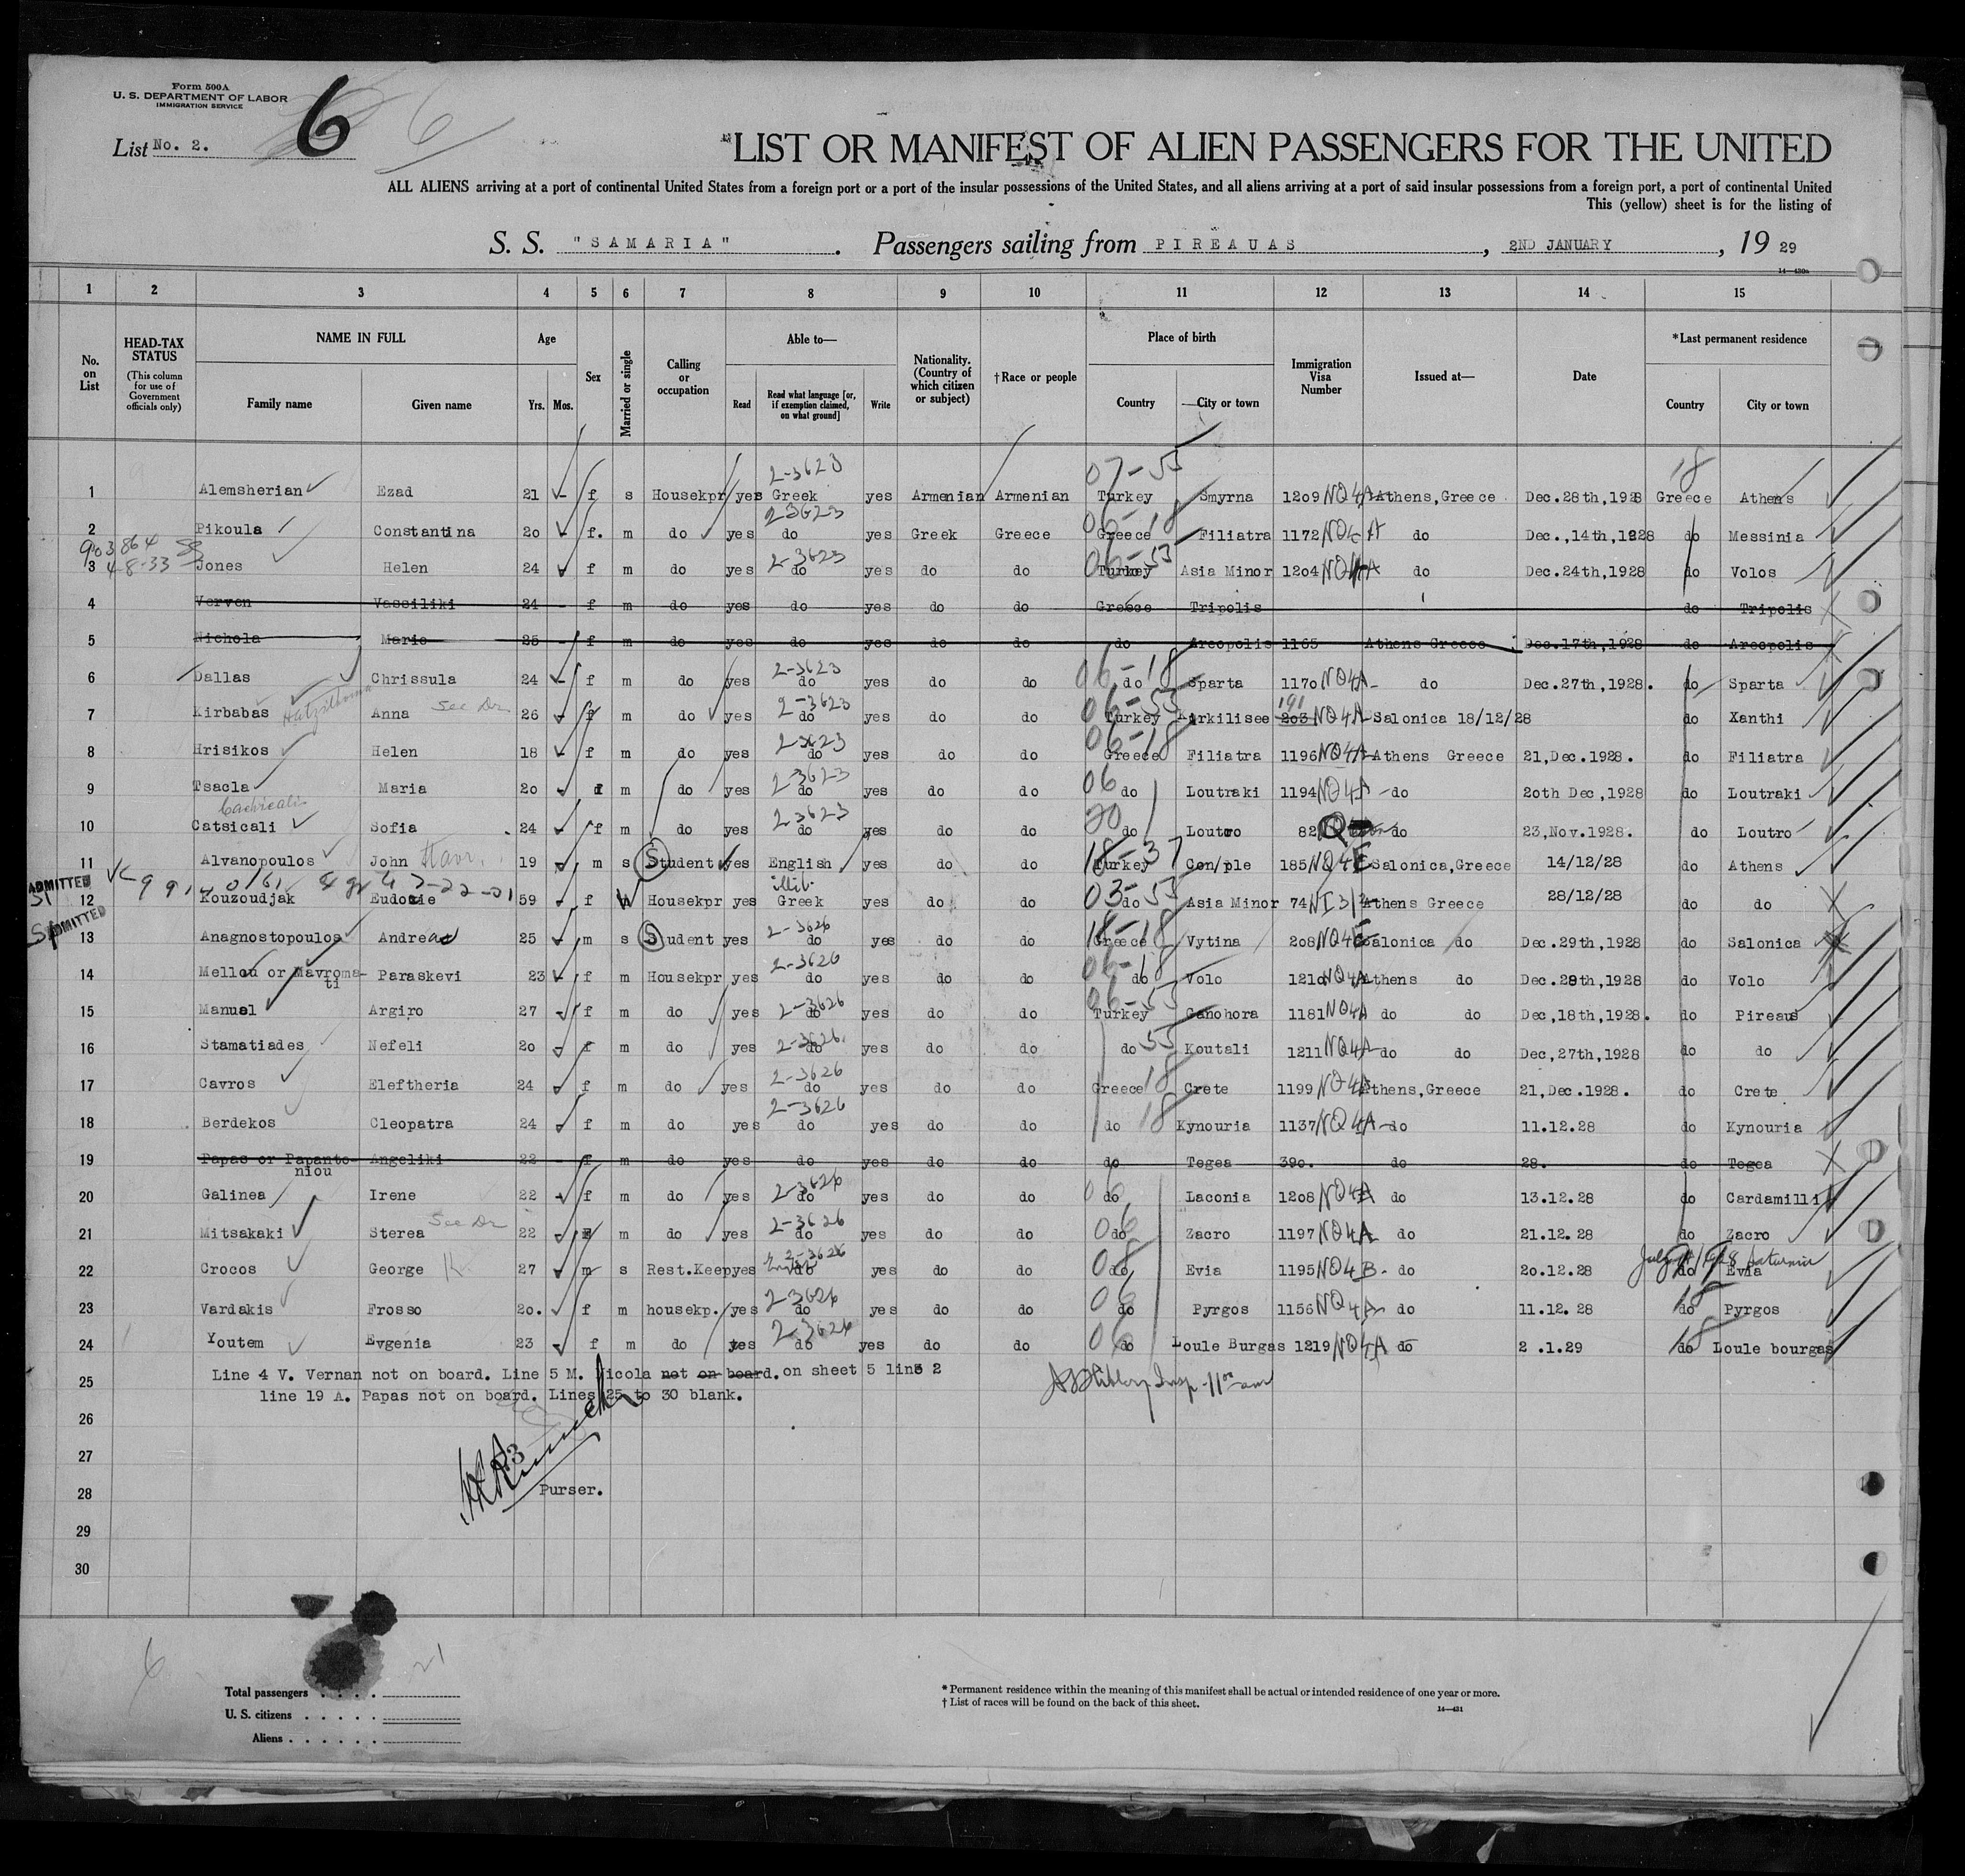 Form 500A
U. S. DEPARTMENT OF LABOR
IMMIGRATION SERVICE
6 6
List No. 2.
LIST OR MANIFEST OF ALIEN PASSENGERS FOR THE UNITED
ALL ALIENS arriving at a port of continental United States from a foreign port or a port of the insular possessions of the United States, and all aliens arriving at a port of said insular possessions from a foreign port, a port of continental United
This (yellow) sheet is for the listing of
S. S. "SAMARIA". Passengers sailing from PIREAUAS, 2ND JANUARY, 19 29
14—430a
1 2 3 4 5 6 7 8 9 10 11 12 13 14 15
No. on List
HEAD-TAX STATUS (This column for use of Government officials only)
NAME IN FULL Family name Given name
Age Yrs. Mos.
Sex
Married or single
Calling or occupation
Able to— Read Read what language [or, if exemption claimed, on what ground] Write
Nationality. (Country of which citizen or subject)
†Race or people
Place of birth Country City or town
Immigration Visa Number
Issued at—
Date
*Last permanent residence Country City or town
2-3623 07-55 18
1 Alemsherian Ezad 21 - f s Housekpr yes Greek yes Armenian Armenian Turkey Smyrna 1209 NQ4A Athens, Greece Dec.28th,1928 Greece Athens
23623 06-18
2 Pikoula Constantina 20 f. m do yes do yes Greek Greece Greece Filiatra 1172 NQ4A do Dec.,14th,1928 do Messinia
903864
4-8-33 2-3623 06-55
3 Jones Helen 24 f m do yes do yes do do Turkey Asia Minor 1204 NQ4A do Dec.24th,1928 do Volos
4 Verven Vassiliki 24 - f m do yes do yes do do Greece Tripolis do Tripolis
5 Nichola Marie 25 - f m do yes do yes do do do Areopolis 1165 Athens Greece Dec.17th,1928 do Areopolis
2-3623 06-18
6 Dallas Chrissula 24 - f m do yes do yes do do do Sparta 1170 NQ4A- do Dec.27th,1928. do Sparta
See Dr 2-3623 06-55 191
7 Kirbabas Anna 26 - f m do yes do yes do do Turkey Kirkilisee 203 NQ4A Salonica 18/12/28 do Xanthi
2-3623 06-18
8 Hrisikos Helen 18 - f m do yes do yes do do Greece Filiatra 1196 NQ4A Athens Greece 21,Dec.1928. do Filiatra
2-3623 06
9 Tsacla Maria 20 f m do yes do yes do do do Loutraki 1194 NQ4A -do 20th Dec,1928 do Loutraki
2-3623 20
10 Catsicali Sofia 24 - f m do yes do yes do do do Loutro 82 do 23,Nov.1928. do Loutro
18-37
11 Alvanopoulos John 19 m s Student yes English yes do do Turkey Con/ple 185 NQ4E Salonica,Greece 14/12/28 do Athens
ADMITTED illit. 03-55
12 Kouzoudjak Eudoxie 59 - f W Housekpr yes Greek yes do do do Asia Minor 74 NI3 Athens Greece 28/12/28 do do
ADMITTED 2-3626 18-18
13 Anagnostopoulos Andreas 25 m s Student yes do yes do do Greece Vytina 208 NQ4E Salonica do Dec.29th,1928 do Salonica
2-3626 06-18
14 Mellou or Mavromati Paraskevi 23 f m Housekpr yes do yes do do do Volo 1210 NQ4A Athens do Dec.28th,1928 do Volo
2-3626 06-55
15 Manuel Argiro 27 f m do yes do yes do do Turkey Ganohora 1181 NQ4A do do Dec,18th,1928. do Pireaus
2-3626 55
16 Stamatiades Nefeli 20 f m do yes do yes do do do Koutali 1211 NQ4A do do Dec,27th,1928 do do
2-3626 18
17 Cavros Eleftheria 24 f m do yes do yes do do Greece Crete 1199 NQ4A Athens,Greece 21,Dec.1928. do Crete
2-3626 18
18 Berdekos Cleopatra 24 f m do yes do yes do do do Kynouria 1137 NQ4A -do 11.12.28 do Kynouria
19 Papas or Papantoniou Angeliki 22 - f m do yes do yes do do do Tegea 390. do 28. do Tegea
2-3626 06
20 Galinea Irene 22 f m do yes do yes do do do Laconia 1208 NQ4A do 13.12.28 do Cardamilli
See Dr 2-3626 06
21 Mitsakaki Sterea 22 f m do yes do yes do do do Zacro 1197 NQ4A do 21.12.28 do Zacro
2-3626 08
22 Crocos George 27 m s Rest.Keep yes do yes do do do Evia 1195 NQ4B- do 20.12.28 do Evia
2-3626 06 18
23 Vardakis Frosso 20. f m housekp. yes do yes do do do Pyrgos 1156 NQ4A do 11.12.28 do Pyrgos
2-3626 06 18
24 Youtem Evgenia 23 f m do yes do yes do do do Loule Burgas 1219 NQ4A do 2.1.29 do Loule bourgas
25 Line 4 V. Vernan not on board. Line 5 M. Nicola not on board. on sheet 5 line 2
line 19 A. Papas not on board. Lines 25 to 30 blank.
26
27
28 Purser.
29
30
6 21
Total passengers
U. S. citizens
Aliens
* Permanent residence within the meaning of this manifest shall be actual or intended residence of one year or more.
† List of races will be found on the back of this sheet.
14—431